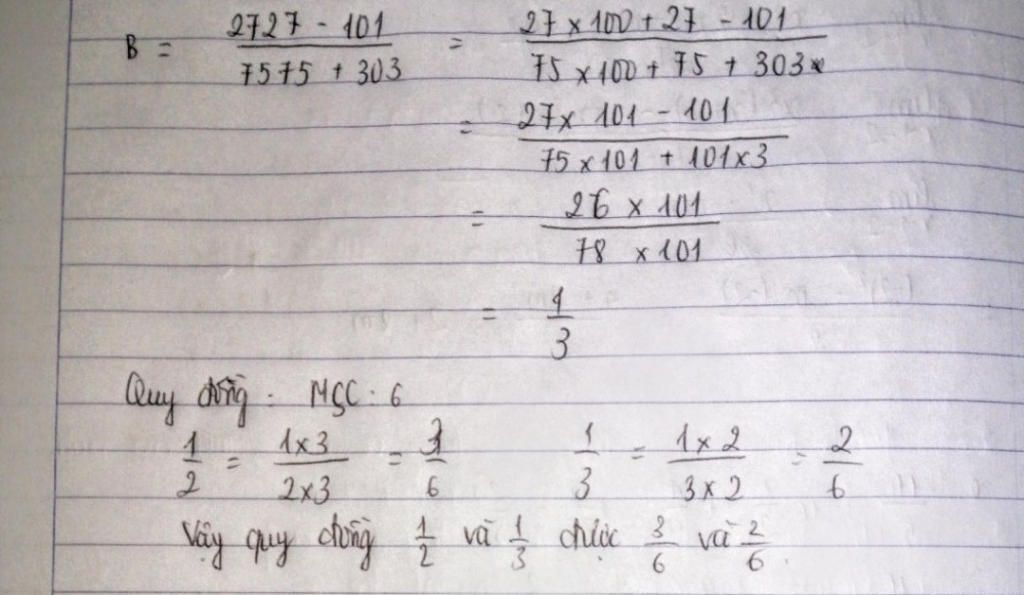 B = (2727 - 101)/(7575 + 303) = (27 x 100 + 27 - 101)/(75 x 100 + 75 + 303)
= (27 x 101 - 101)/(75 x 101 + 101 x 3)
= (26 x 101)/(78 x 101)
= 1/3
Quy đồng: MSC: 6
1/2 = (1 x 3)/(2 x 3) = 3/6 1/3 = (1 x 2)/(3 x 2) = 2/6
Vậy quy đồng 1/2 và 1/3 được 3/6 và 2/6.